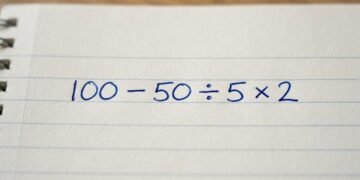 100 − 50 ÷ 5 × 2